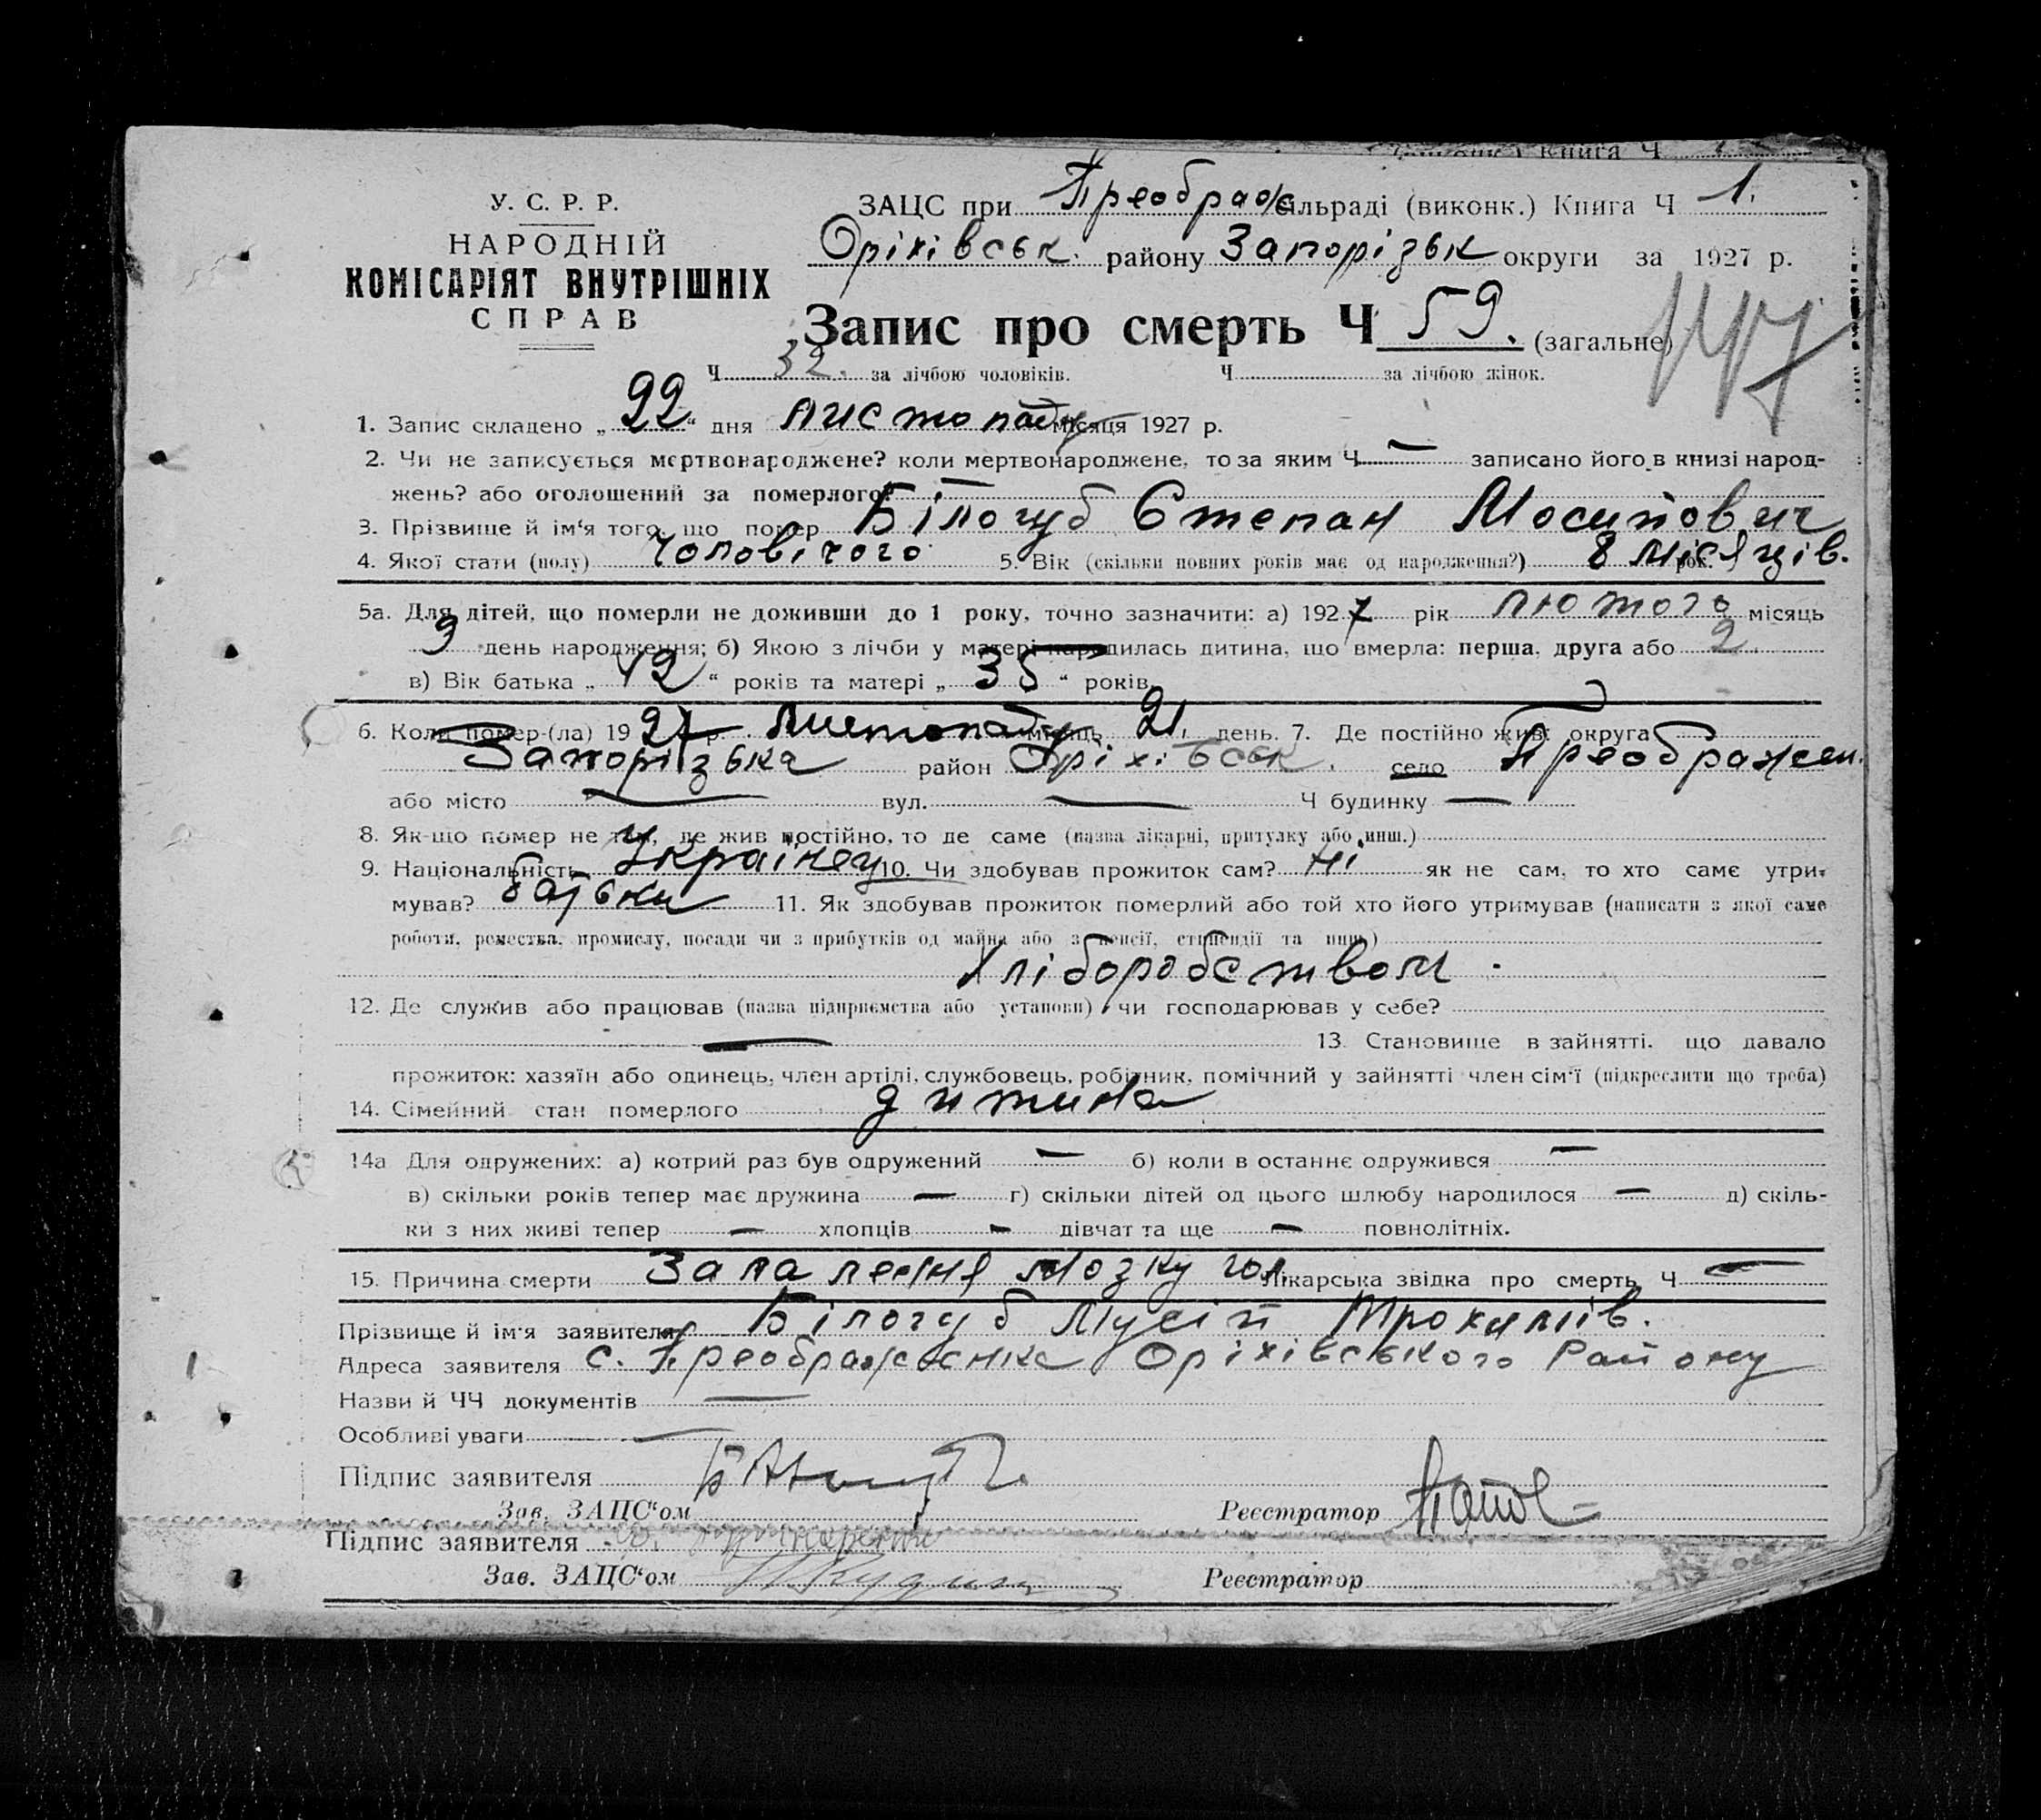 Книга Ч
У. С. Р. Р.
НАРОДНІЙ
КОМІСАРІЯТ ВНУТРІШНІХ
СПРАВ
ЗАЦС при Преображ сільраді (виконк.) Книга Ч 1.
Оріхівськ. району Запорізьк округи за 1927 р.
Запис про смерть Ч 59. (загальне)
147
Ч 32. за лічбою чоловіків. Ч за лічбою жінок.
1. Запис складено „ 22 “ дня листопаду місяця 1927 р.
2. Чи не записується мертвонароджене? коли мертвонароджене, то за яким Ч — записано його в книзі народ-
жень? або оголошений за померлого? —
3. Прізвище й ім‘я того, що помер Білогуб Степан Мосипович
4. Якої стати (полу) чоловічого 5. Вік (скільки повних років має од народження?) 8 місяців. рок.
5а. Для дітей, що померли не доживши до 1 року, точно зазначити: а) 1927 рік лютого місяць
9 день народження; б) Якою з лічби у матері народилась дитина, що вмерла: перша, друга або 2.
в) Вік батька „ 42 “ років та матері „ 35 “ років.
6. Коли помер-(ла) 1927 р. листопаду місяць 21. день. 7. Де постійно жив: округа
Запорізька район Оріхівськ. село Преображен.
або місто — вул. — Ч будинку —
8. Як-що помер не там, де жив постійно, то де саме (назва лікарні, притулку або инш.)
9. Національність Українец 10. Чи здобував прожиток сам? ні як не сам, то хто саме утри-
мував? батьки 11. Як здобував прожиток померлий або той хто його утримував (написати з якої саме
роботи, ремества, промислу, посади чи з прибутків од майна або з пенсії, стипендії та инш.)
Хліборобством.
12. Де служив або працював (назва підприємства або установи) чи господарював у себе?
— 13. Становище в зайнятті, що давало
прожиток: хазяїн або одинець, член артілі, службовець, робітник, помічний у зайнятті член сім‘ї (підкреслити що треба)
14. Сімейний стан померлого дитина
14а Для одружених: а) котрий раз був одружений — б) коли в останнє одружився —
в) скільки років тепер має дружина — г) скільки дітей од цього шлюбу народилося — д) скіль-
ки з них живі тепер — хлопців — дівчат та ще — повнолітніх.
15. Причина смерти Запалення мозку гол. Лікарська звідка про смерть Ч —
Прізвище й ім‘я заявителя Білогуб Мусій Трохимів.
Адреса заявителя с. Преображенка Оріхівського Району
Назви й ЧЧ документів —
Особливі уваги —
Підпис заявителя
Зав. ЗАЦС“ом Реєстратор
Підпис заявителя
Зав. ЗАЦС“ом Реєстратор